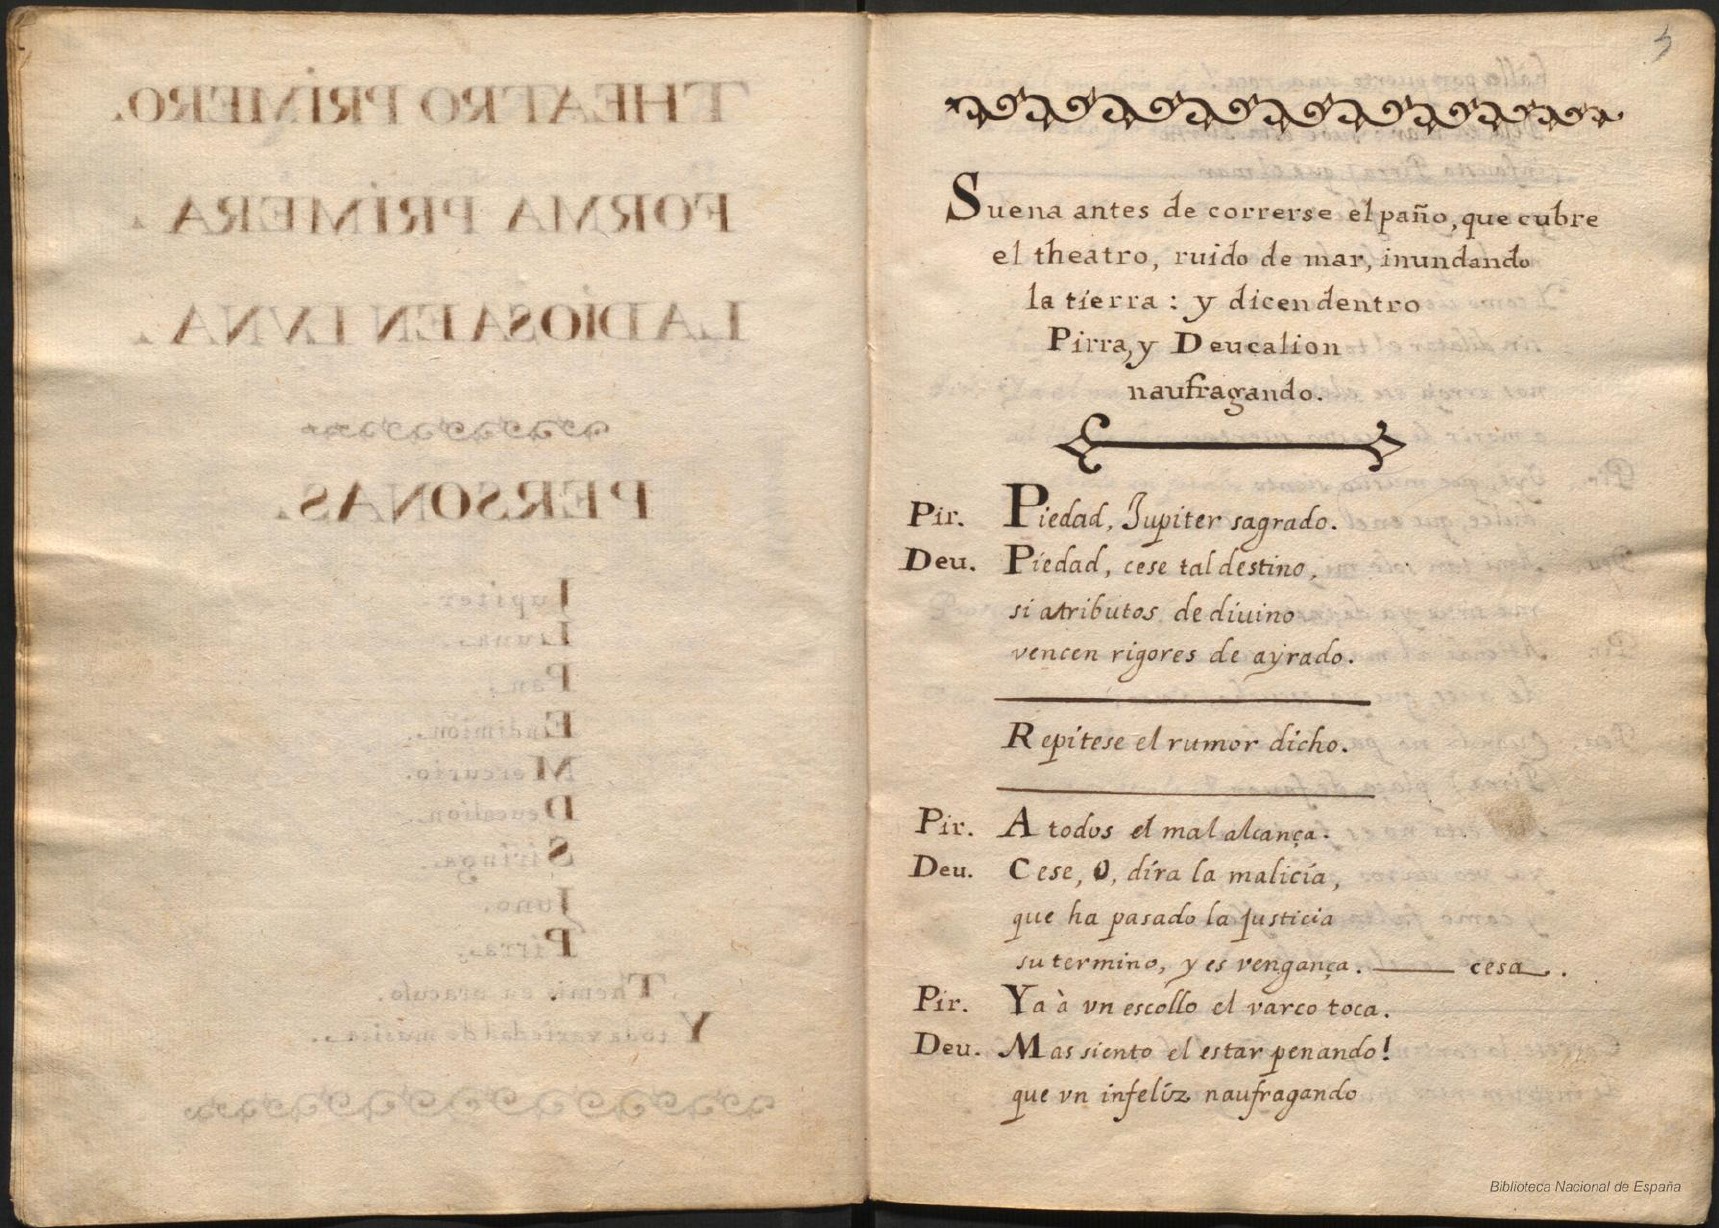 THEATRO PRIMERO.
FORMA PRIMERA.
LA DIOSA EN LVNA.
PERSONAS.
Jupiter.
Luna.
Pan.
Endimion.
Mercurio.
Deucalion.
Siringa.
Juno.
Pirra.
Themis en oraculo.
Y toda variedad de musica.
3
Suena antes de correrse el paño, que cubre
el theatro, ruido de mar, inundando
la tierra: y dicen dentro
Pirra, y Deucalion
naufragando.
Pir. Piedad, Jupiter sagrado.
Deu. Piedad, cese tal destino,
si atributos de diuino
vencen rigores de ayrado.
Repitese el rumor dicho.
Pir. A todos el mal alcança.
Deu. Cese, O, dira la malicia,
que ha pasado la justicia
su termino, y es vengança. — cesa.
Pir. Ya à vn escollo el varco toca.
Deu. Mas siento el estar penando!
que vn infeliz naufragando
Biblioteca Nacional de España